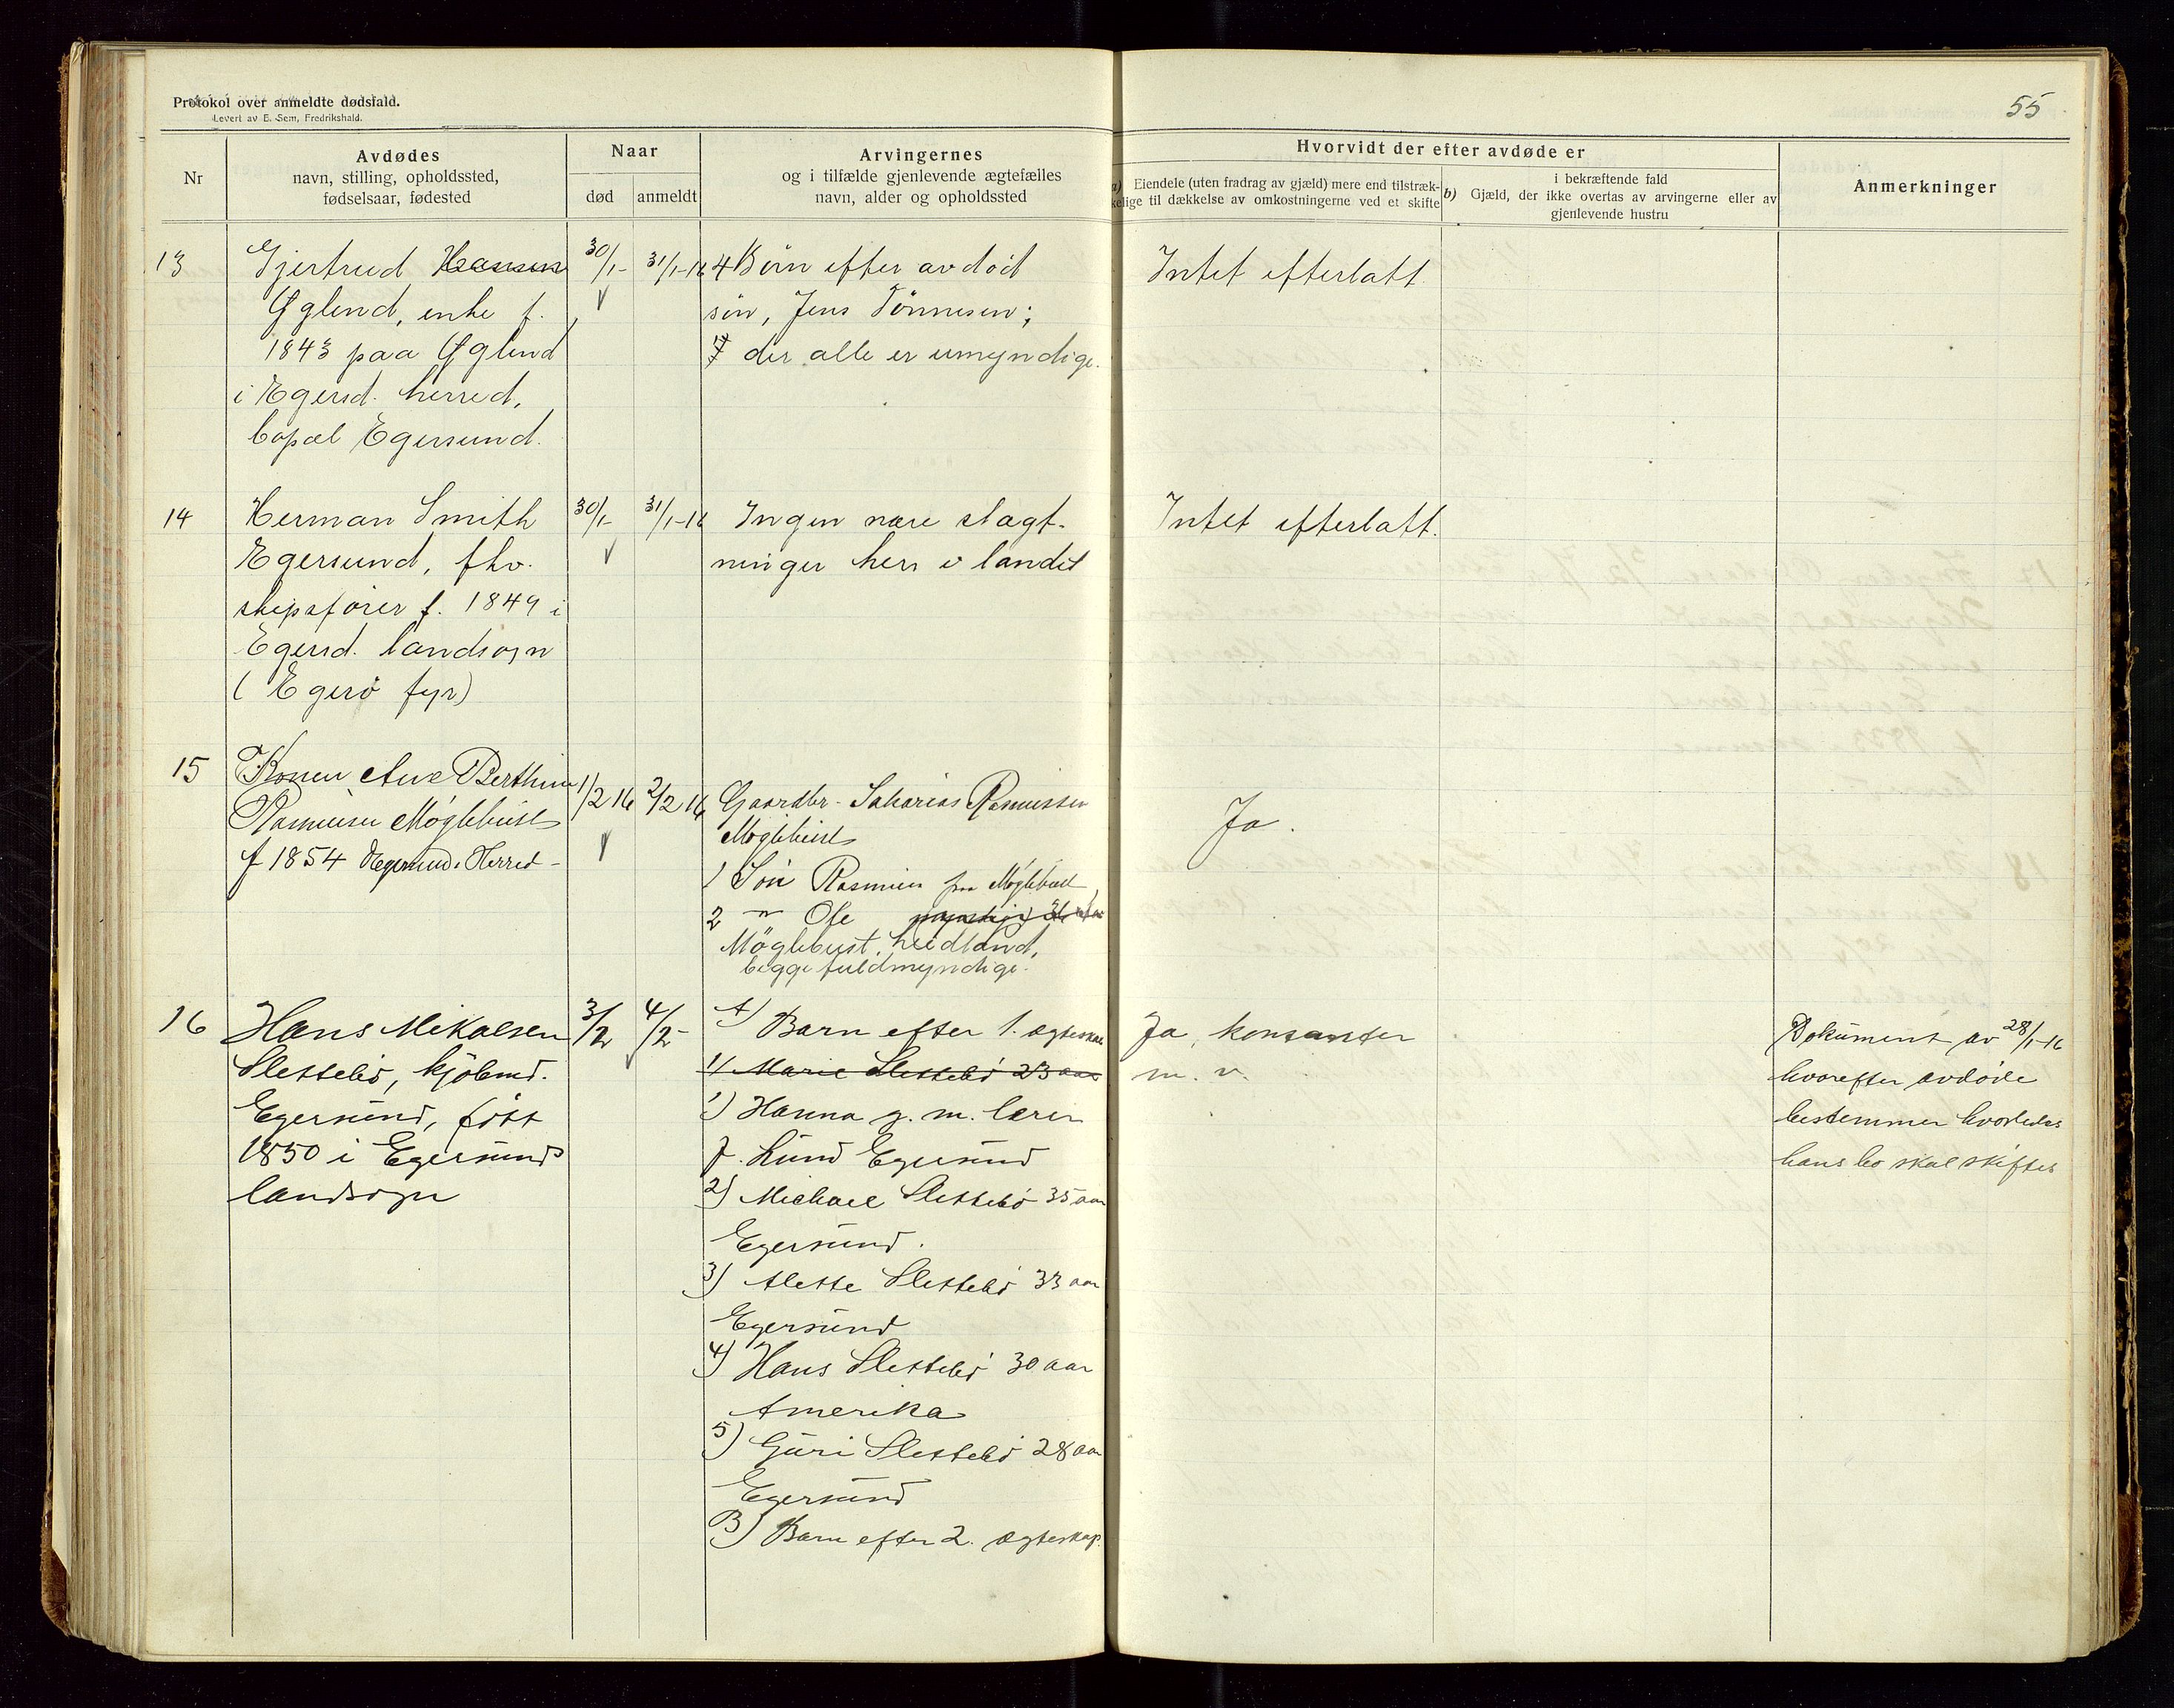 Protokol over anmeldte dødsfald.
Levert av E. Sem, Fredrikshald.
55
Nr
Avdødes
navn, stilling, opholdssted,
fødselsaar, fødested
Naar
død
anmeldt
Arvingernes
og i tilfælde gjenlevende ægtefælles
navn, alder og opholdssted
Hvorvidt der efter avdøde er
a) Eiendele (uten fradrag av gjæld) mere end tilstræk-
kelige til dækkelse av omkostningerne ved et skifte
b) i bekræftende fald
Gjæld, der ikke overtas av arvingerne eller av
gjenlevende hustru
Anmerkninger
13
Gjertrud Hansen
Yglend, enke f.
1843 paa Yglend
i Egersd. herred,
bopæl Egersund.
30/1-
31/1-16
4 Børn efter avdød
søn, Jens Tönnesen;
der alle er umyndige.
Intet efterlatt.
14
Herman Smith
Egersund, fhv.
skipsfører f. 1849 i
Egersd. landsogn
(Egerö fyr)
30/1-
31/1-16
Ingen nære slagt-
ninger her i landet
Intet efterlatt.
15
Konen Ane Berthine
Rasmusen Møglebust
f 1854 Egersund Herred-
1/2 16
2/2 16
Gaardbr. Sakarias Rasmussen
Møglebust
1 Søn Rasmus paa Møglebust
2 " Ole
Möglebust, Heidland,
begge fuldmyndige.
Ja.
16
Hans Mikalsen
Slettebö, kjöbmd.
Egersund, født
1850 i Egersunds
landsogn
3/2
4/2-
A) Barn efter 1. ægteskab
1) Marie Slettebö 23 aar
1) Hanna g. m. lærer
J. Lund Egersund
2) Michael Slettebö 35 aar
Egersund.
3) Alette Slettebö 33 aar
Egersund
4) Hans Slettebö 30 aar
Amerika
5) Guri Slettebö 28 aar
Egersund
B) Barn efter 2. ægteskap.
Ja, kontanter
m. v.
Dokument av 28/1-16
hvorefter avdøde
bestemmer hvorledes
hans bo skal skiftes